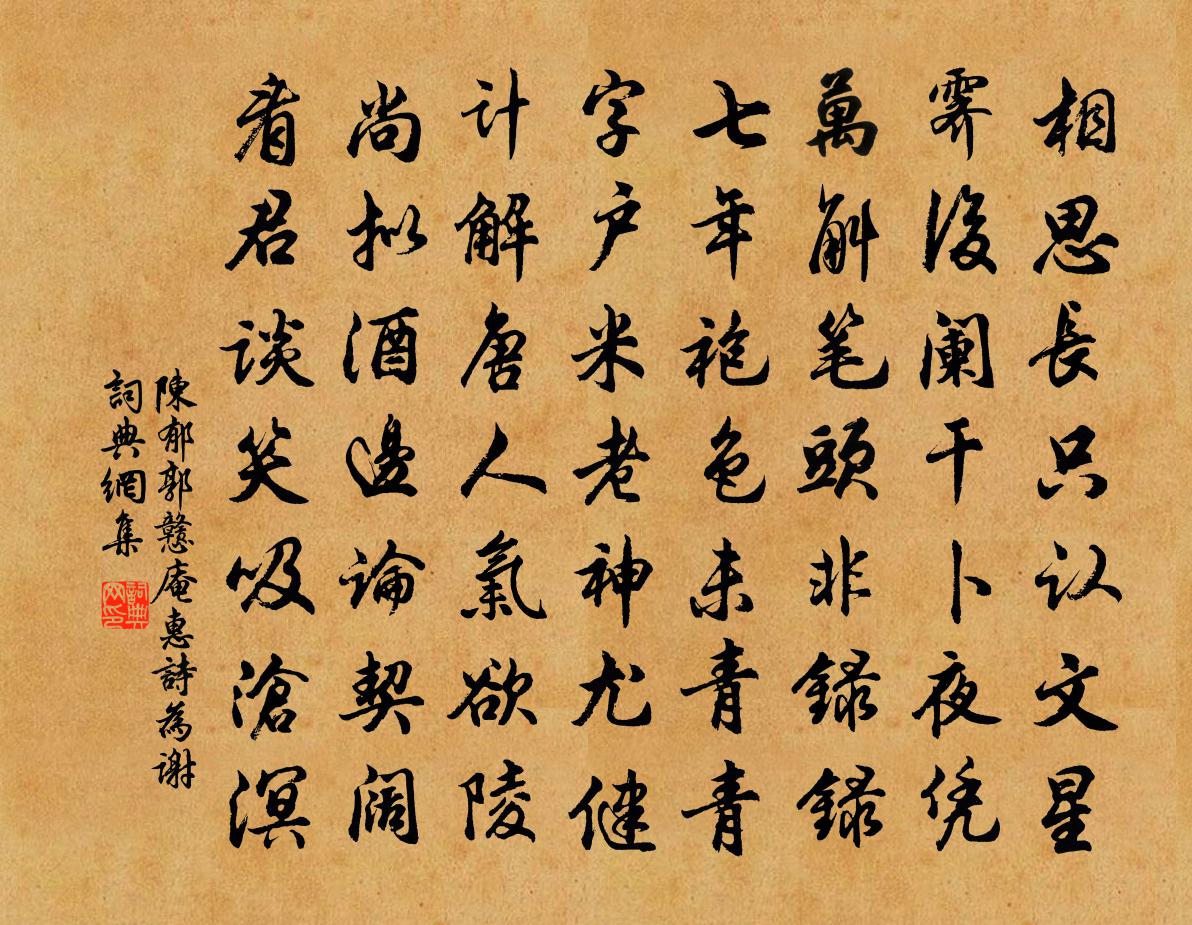 相思長只认文星
霁後阑干卜夜凭
萬斛笔頭非録録
七年袍色未青青
字户米老神尤健
计解唐人氣欲陵
尚拟酒邊論契阔
看君谈笑吸滄溟
陳郁郭戆庵惠詩為謝
詞典網集
詞典网印